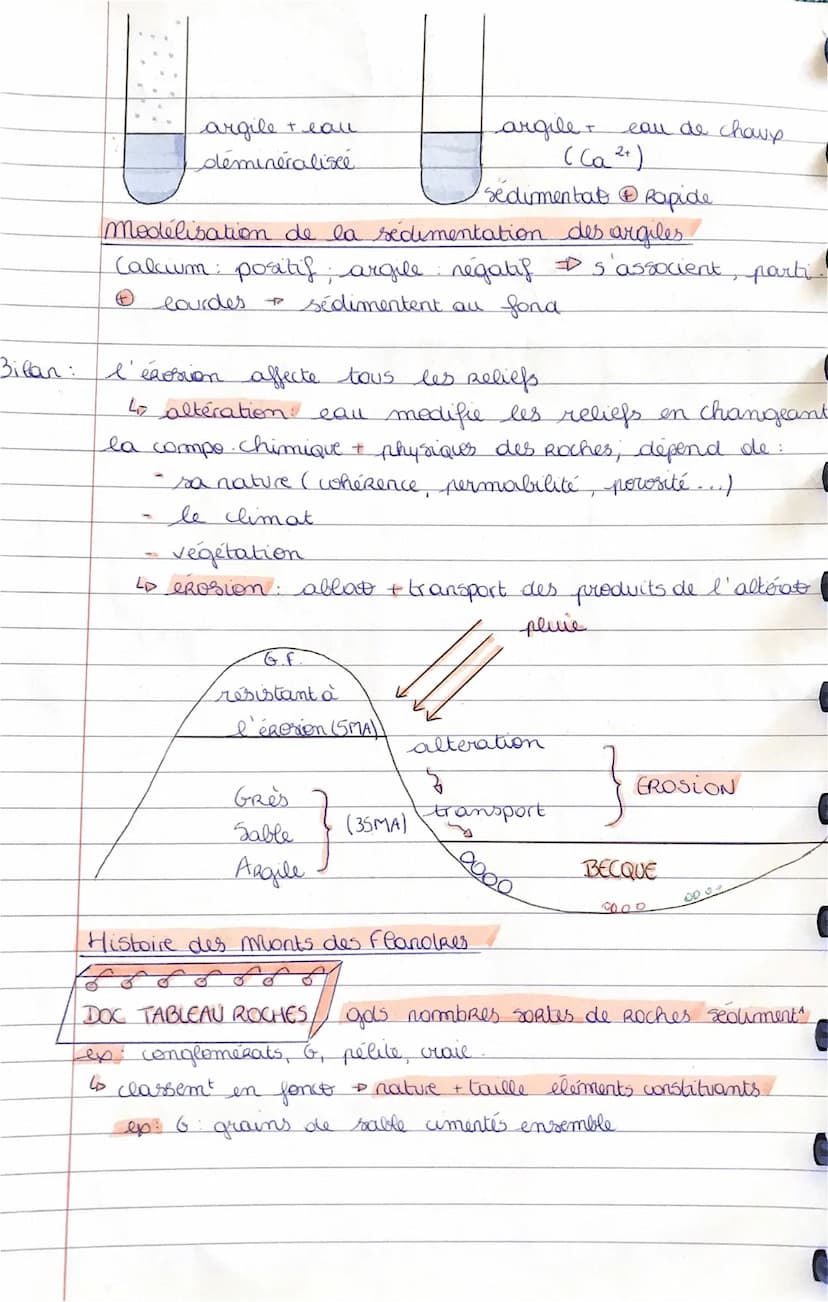 argile + eau
déminéralisée
argile + eau de chaux
(Ca²⁺)
sédimentat° ⊕ Rapide
Modélisation de la sédimentation des argiles
Calcium : positif ; argile : négatif ⇒ s'associent, parti.
⊕ lourdes → sédimentent au fond
Bilan : l'érosion affecte tous les Reliefs
↳ altération : eau modifie les reliefs en changeant
la compo. chimique + physiques des Roches, dépend de :
- sa nature (cohérence, permabilité, porosité ...)
- le climat
- végétation
↳ érosion : ablat° + transport des produits de l'altérat°
pluie
G.F.
résistant à
l'érosion (5MA)
alteration
transport
EROSION
Grès
Sable
Argile
(35MA)
BECQUE
Histoire des Monts des Flandres
DOC TABLEAU ROCHES gds nombres sortes de Roches sédimentᴬ
ex : conglomérats, G, pélite, craie.
↳ classemᵗ en fonct° → nature + taille éléments constituants
ex : G : grains de sable cimentés ensemble